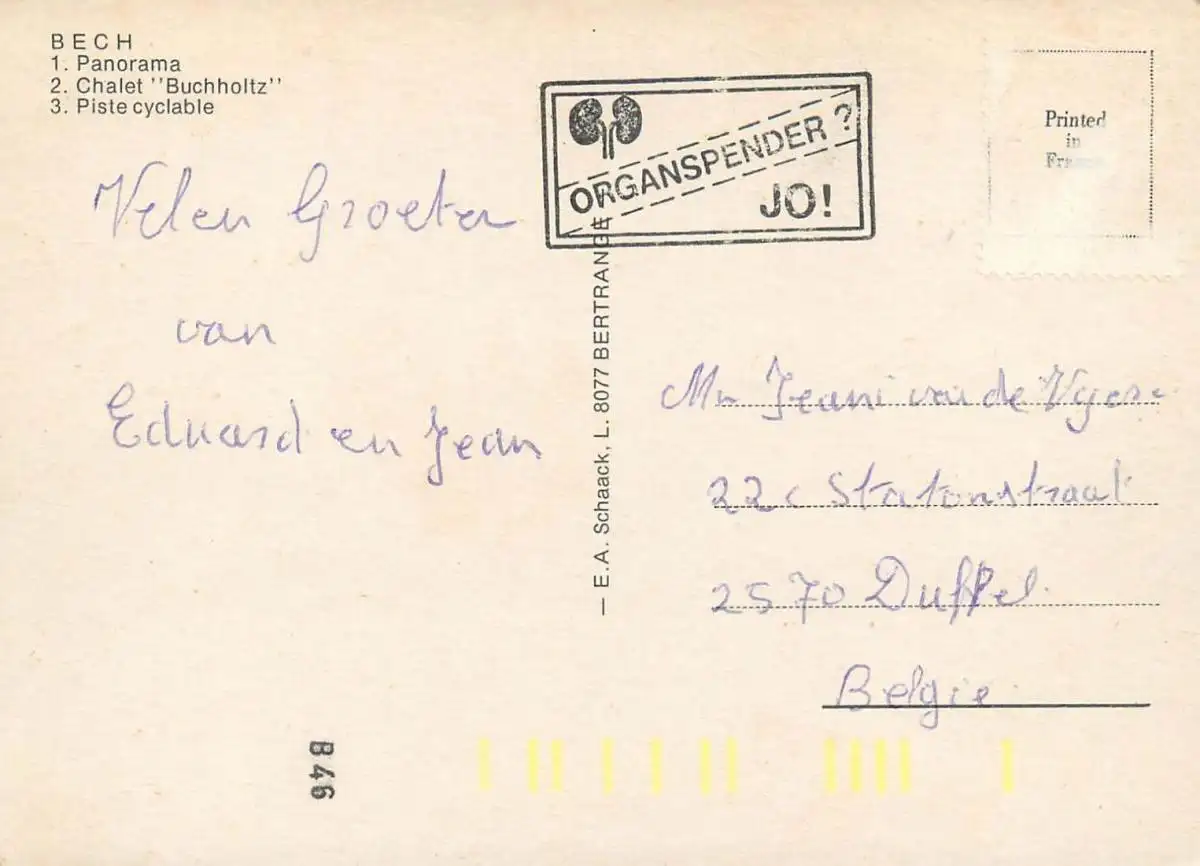 BECH
1. Panorama
2. Chalet "Buchholtz"
3. Piste cyclable
ORGANSPENDER ?
JO!
Printed
in
Velen Groeten
van
Eduard en Jean
— E.A. Schaack, L. 8077 BERTRANGE
Mr Jeani van de
22c Statonstraat
2570 Duffel
Belgie
846